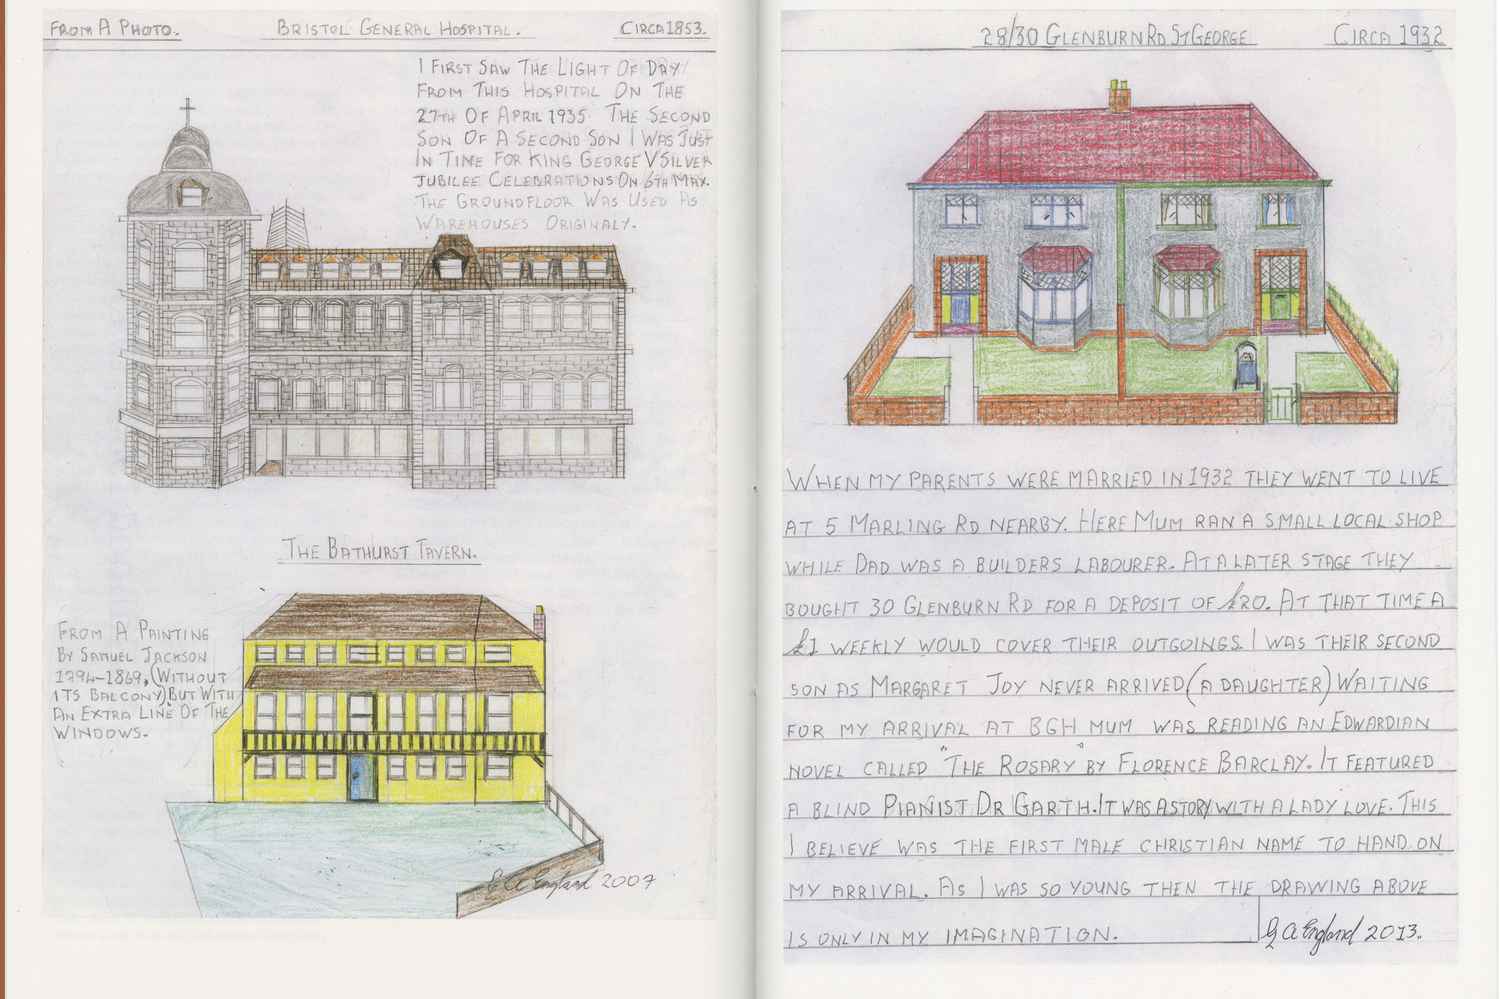 FROM A PHOTO.
BRISTOL GENERAL HOSPITAL.
CIRCA 1853.
I FIRST SAW THE LIGHT OF DAY
FROM THIS HOSPITAL ON THE
27TH OF APRIL 1935. THE SECOND
SON OF A SECOND SON I WAS JUST
IN TIME FOR KING GEORGE V SILVER
JUBILEE CELEBRATIONS ON 6TH MAY.
THE GROUNDFLOOR WAS USED AS
WAREHOUSES ORIGINALY.
THE BATHURST TAVERN.
FROM A PAINTING
BY SAMUEL JACKSON
1794-1869, (WITHOUT
ITS BALCONY) BUT WITH
AN EXTRA LINE OF THE
WINDOWS.
G A England 2007
28/30 GLENBURN RD ST GEORGE
CIRCA 1932
WHEN MY PARENTS WERE MARRIED IN 1932 THEY WENT TO LIVE
AT 5 MARLING RD NEARBY. HERE MUM RAN A SMALL LOCAL SHOP
WHILE DAD WAS A BUILDERS LABOURER. AT A LATER STAGE THEY
BOUGHT 30 GLENBURN RD FOR A DEPOSIT OF £20. AT THAT TIME A
£1 WEEKLY WOULD COVER THEIR OUTGOINGS. I WAS THEIR SECOND
SON AS MARGARET JOY NEVER ARRIVED (A DAUGHTER) WAITING
FOR MY ARRIVAL AT BGH MUM WAS READING AN EDWARDIAN
NOVEL CALLED "THE ROSARY" BY FLORENCE BARCLAY. IT FEATURED
A BLIND PIANIST DR GARTH. IT WAS A STORY WITH A LADY LOVE. THIS
I BELIEVE WAS THE FIRST MALE CHRISTIAN NAME TO HAND ON
MY ARRIVAL. AS I WAS SO YOUNG THEN THE DRAWING ABOVE
IS ONLY IN MY IMAGINATION.
G A England 2013.